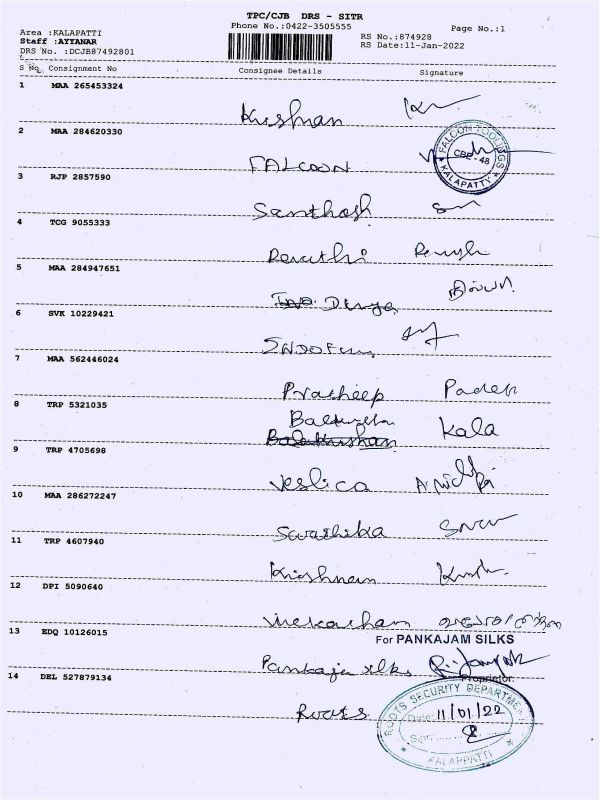 TPC/CJB DRS - SITR
Phone No.:0422-3505555
Page No.:1
Area :KALAPATTI
Staff :AYYANAR
DRS No. :DCJB87492801
RS No.:874928
RS Date:11-Jan-2022
S No. Consignment No Consignee Details Signature
1 MAA 265453324
Krishnan
2 MAA 284620330
FALCOON
FALCON TOOLINGS
CBE - 48
KALAPATTY
3 RJP 2857590
Santhosh
4 TCG 9055333
Revathi
5 MAA 284947651
Divya
6 SVK 10229421
7 MAA 562446024
Pratheep
8 TRP 5321035
Balakrishan
Kala
9 TRP 4705698
Jeslica
10 MAA 286272247
Swathika
11 TRP 4607940
Krishnan
12 DPI 5090640
13 EDQ 10126015
For PANKAJAM SILKS
Pankaja silks
Proprietor.
14 DEL 527879134
Roots
ROOTS SECURITY DEPARTMENT
Date: 11/01/22
Sign
KALAPPATTI